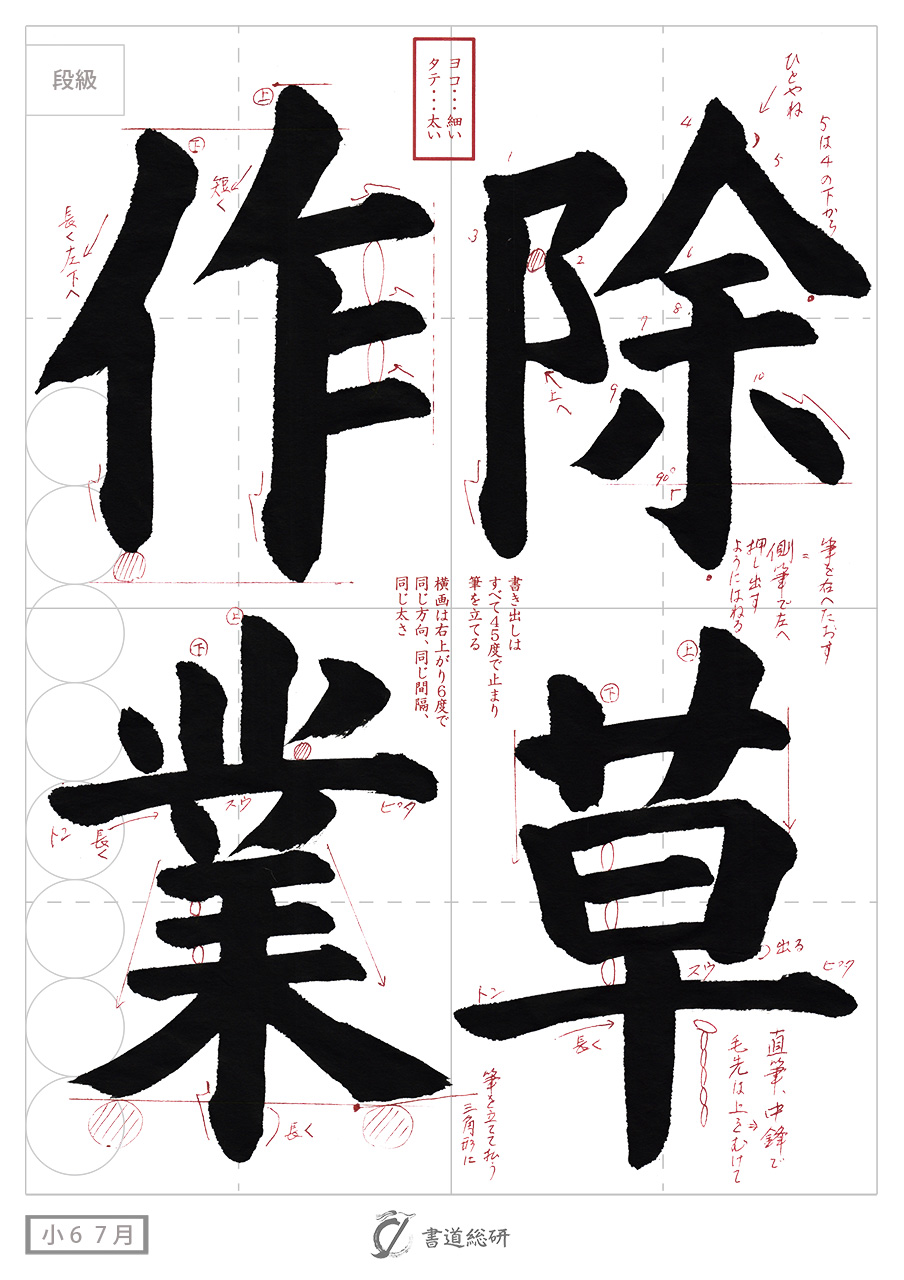 段級
ヨコ・・・細い
タテ・・・太い
除草
作業
ひとやね
5は4の下から
1
2
3
4
5
6
7
8
9
10
上へ
90°
筆を右へたおす
=
側筆で左へ
押し出す
ようにはねる
上
下
短く
長く左下へ
書き出しは
すべて45度で止まり
筆を立てる
横画は右上がり6度で
同じ方向、同じ間隔、
同じ太さ
上
下
出る
トン
スウ
ピタ
長く
直筆、中鋒で
毛先は上をむけて
上
下
トン
スウ
ピタ
長く
長く
筆を立てて払う
三角形に
小6 7月
書道総研